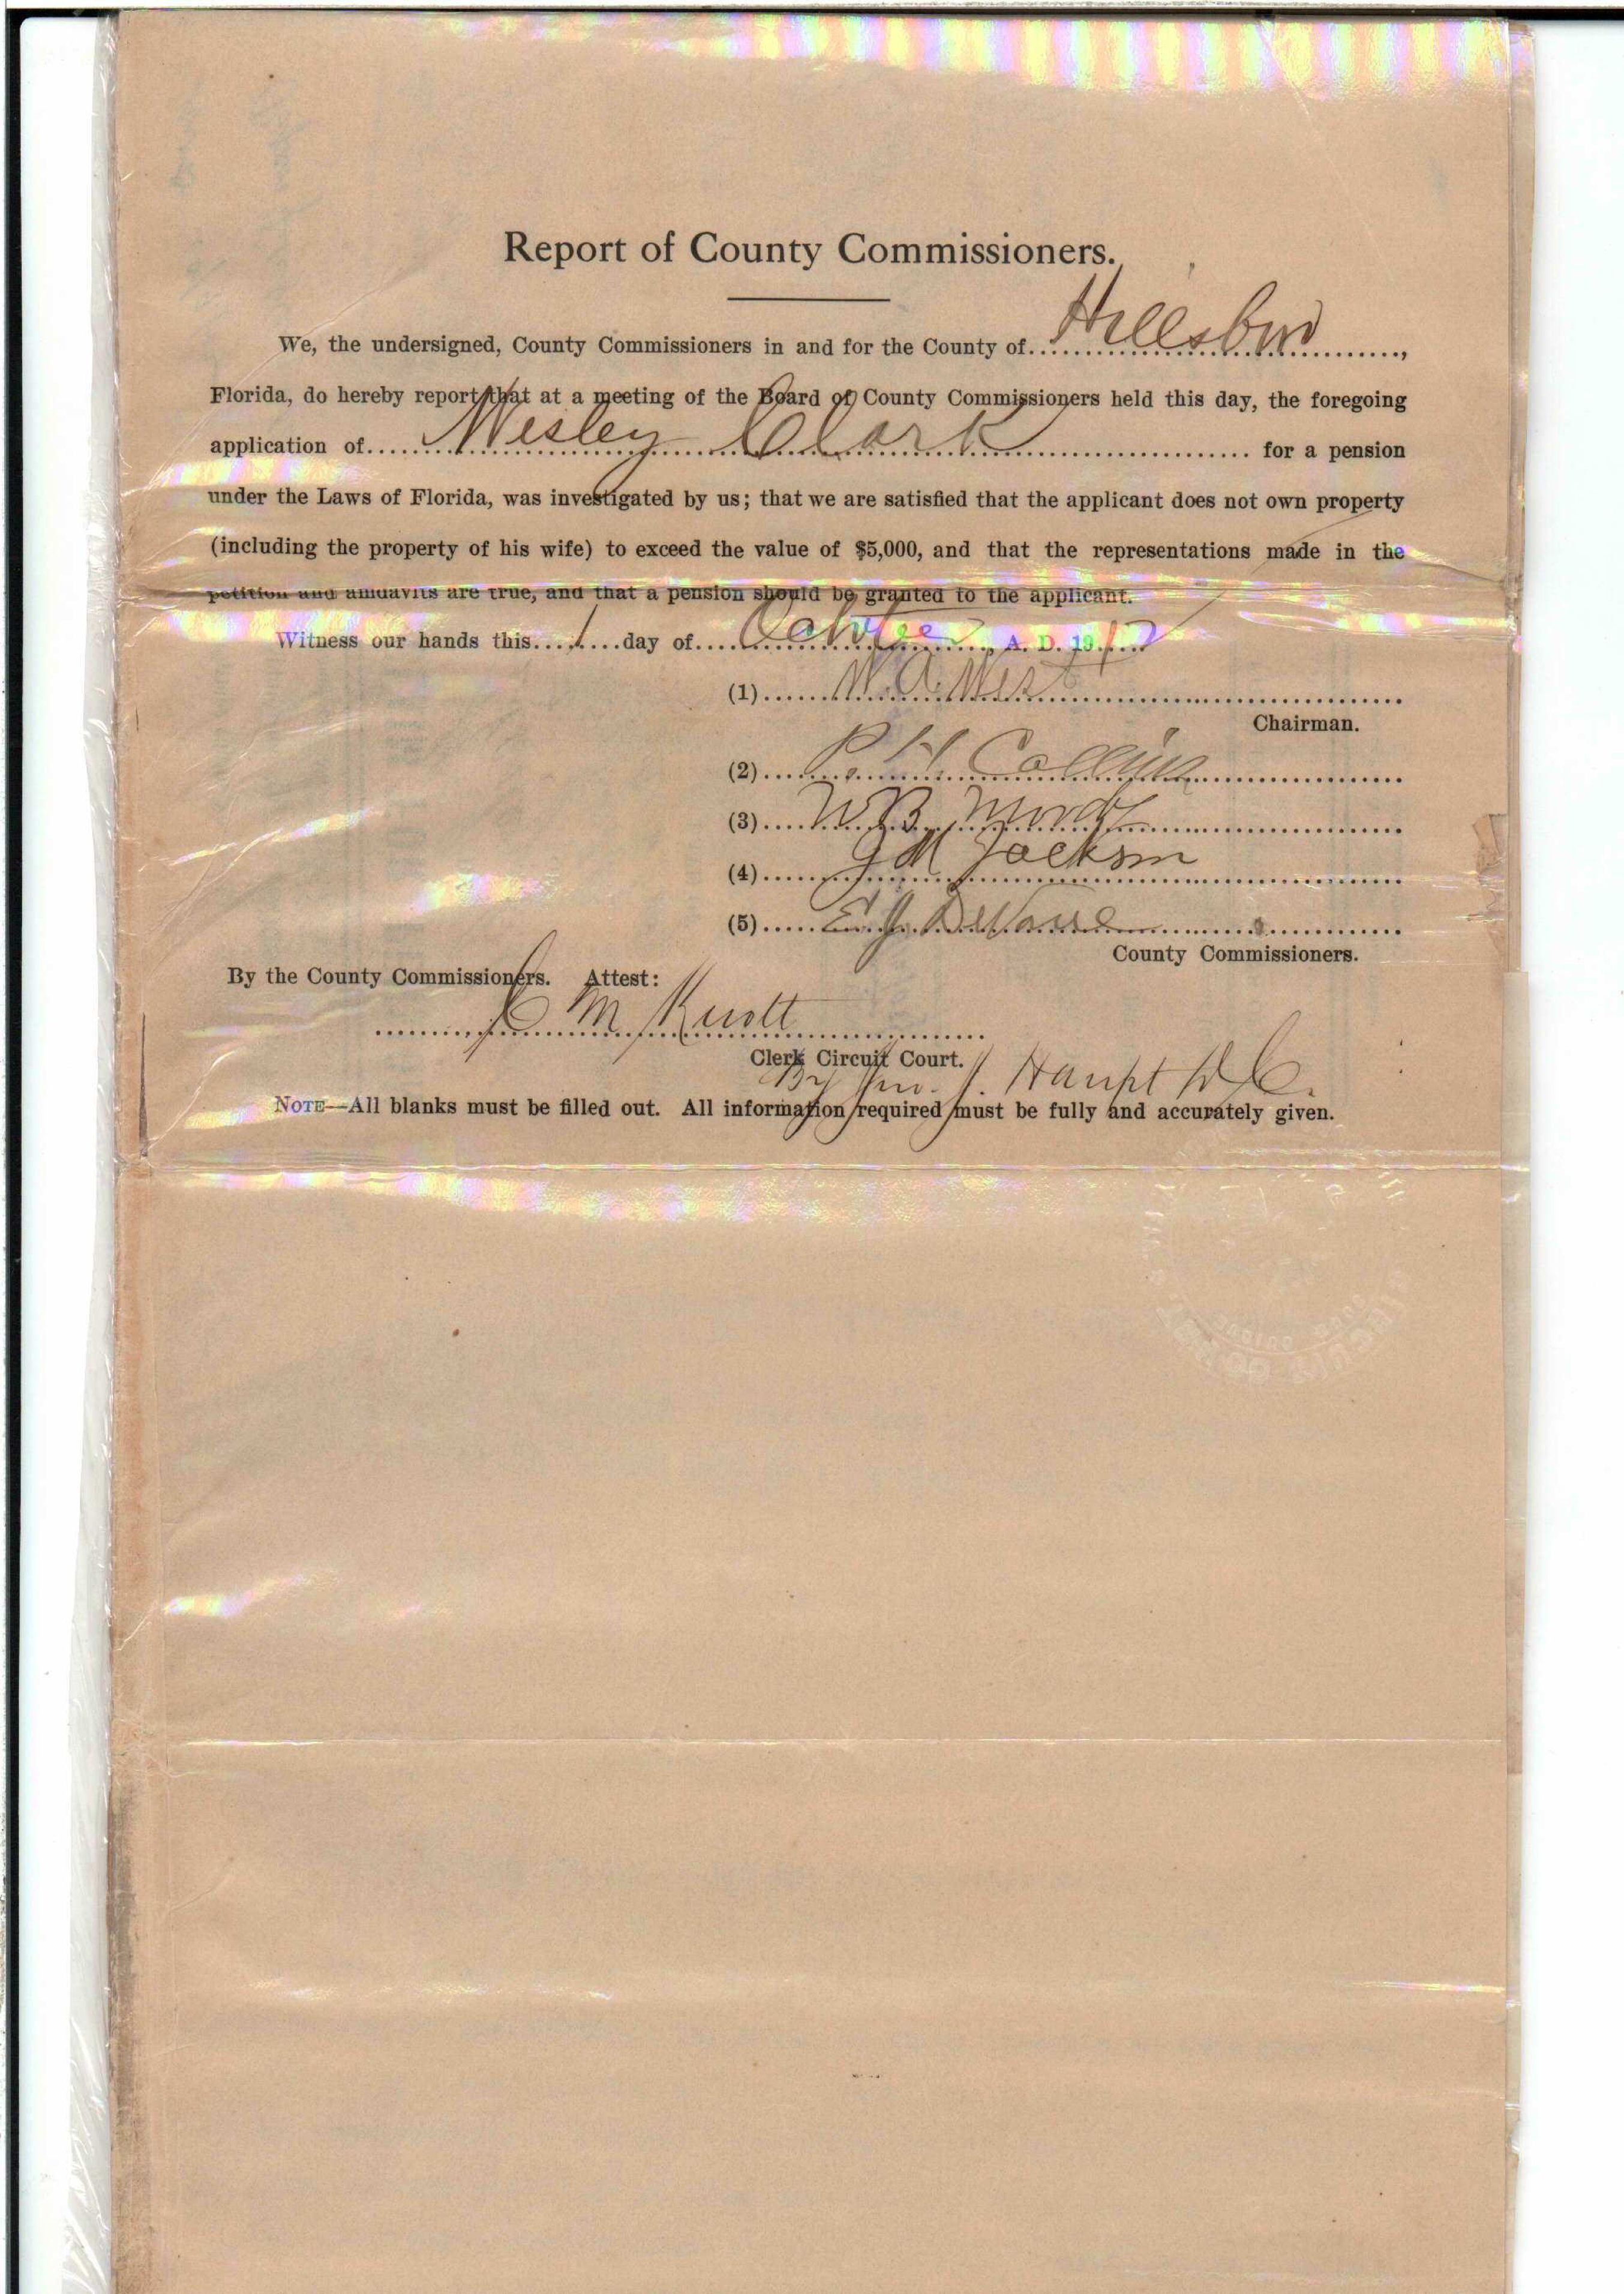 Report of County Commissioners.
We, the undersigned, County Commissioners in and for the County of Hillsboro,
Florida, do hereby report that at a meeting of the Board of County Commissioners held this day, the foregoing
application of Wesley Clark for a pension
under the Laws of Florida, was investigated by us; that we are satisfied that the applicant does not own property
(including the property of his wife) to exceed the value of $5,000, and that the representations made in the
petition and affidavits are true, and that a pension should be granted to the applicant.
Witness our hands this 1 day of October, A. D. 1917
(1) W. A. West
Chairman.
(2) P. H. Collins
(3) W. B. Moody
(4) J M Jackson
(5) E. J. DeVane
County Commissioners.
By the County Commissioners. Attest:
M Knott
Clerk Circuit Court.
By Jno. J. Haupt D C.
NOTE—All blanks must be filled out. All information required must be fully and accurately given.